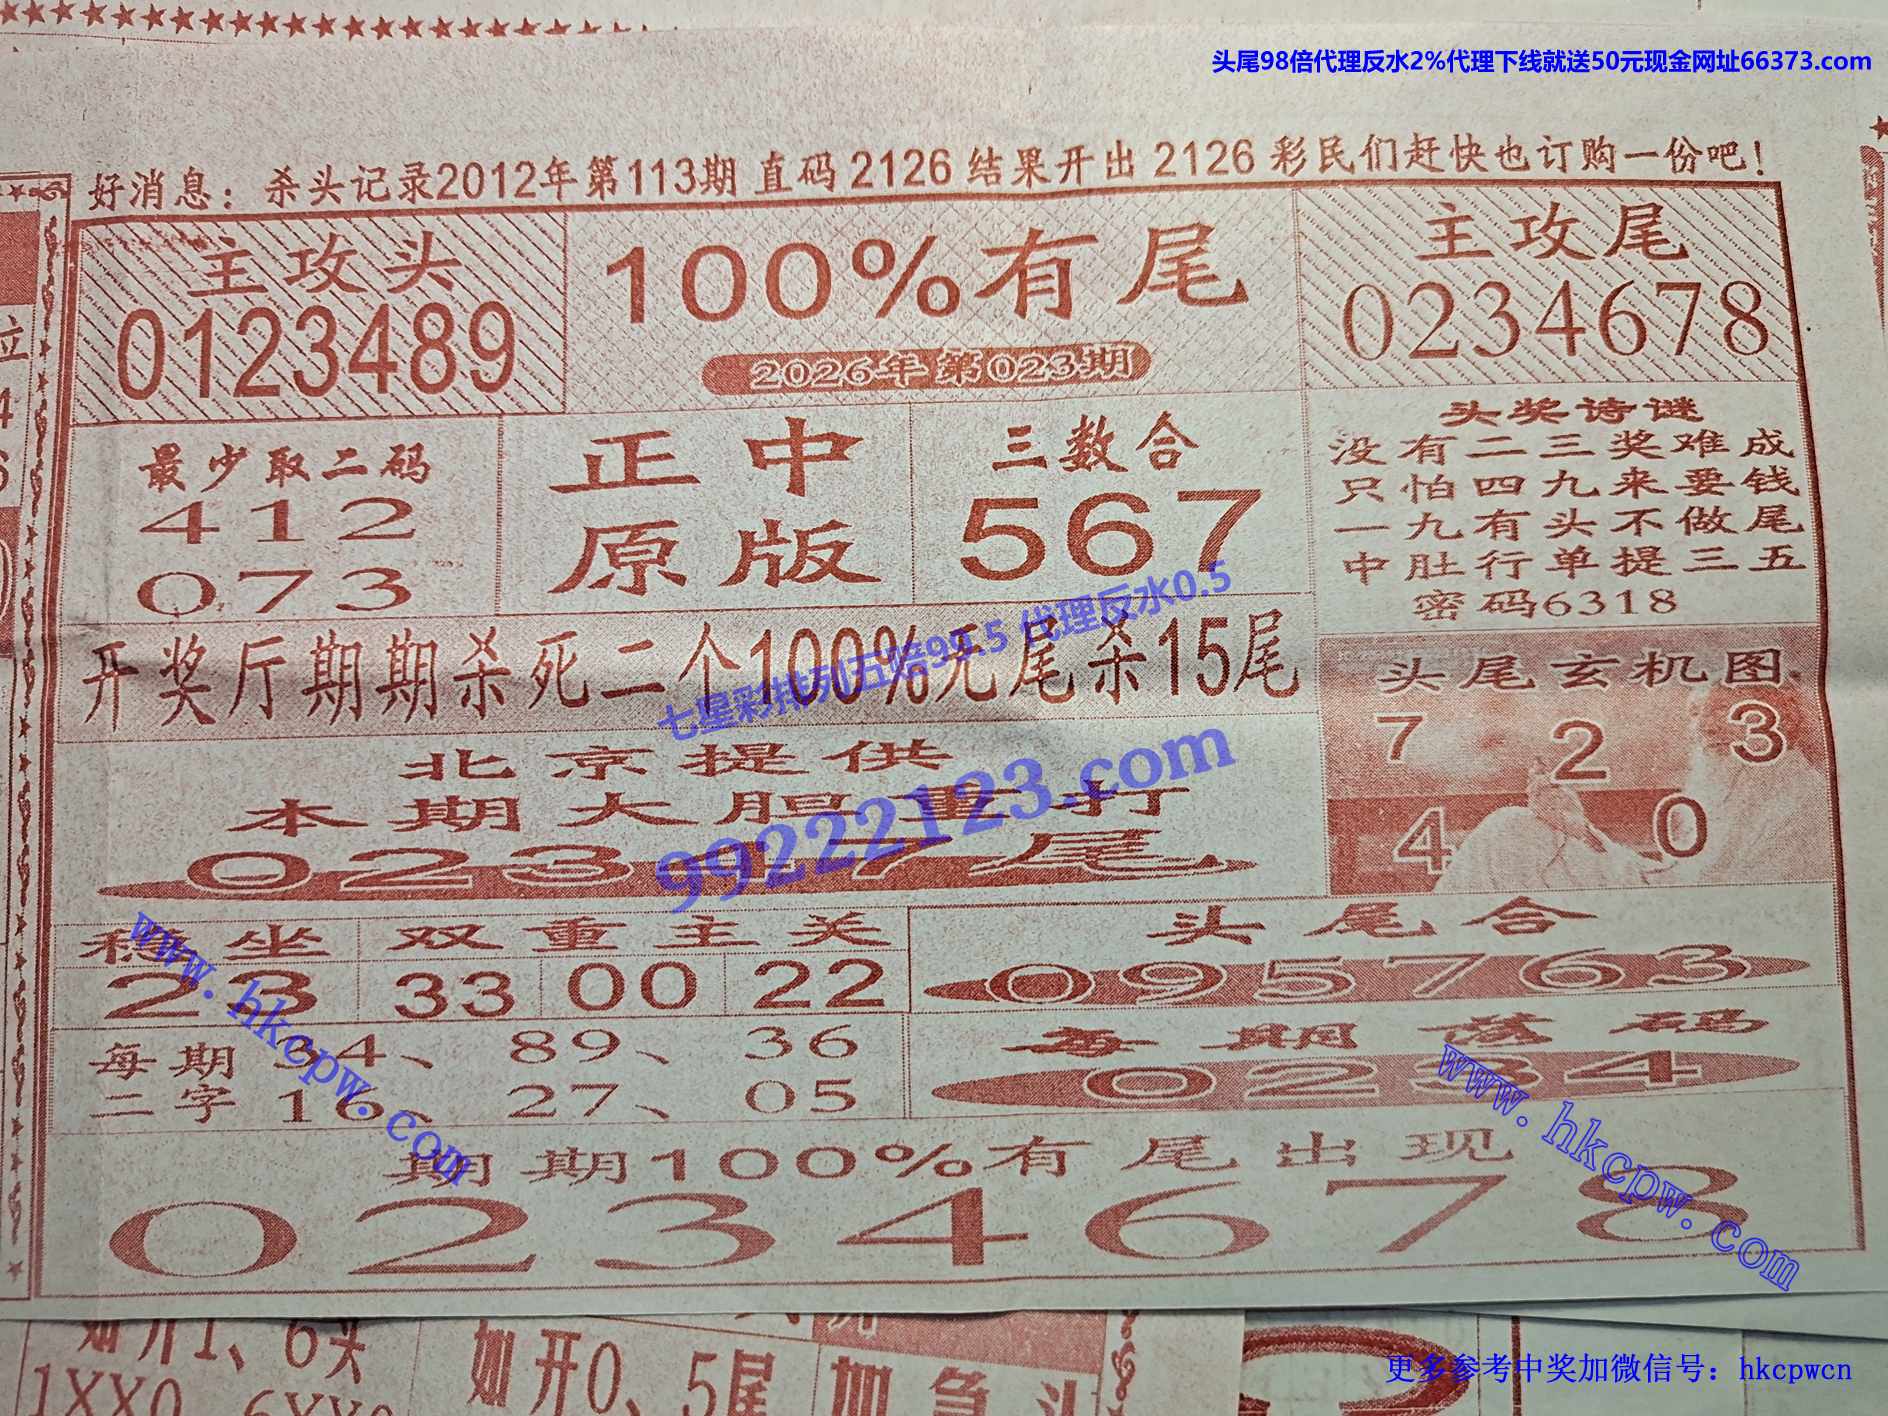 头尾98倍代理反水2%代理下线就送50元现金网址66373.com
好消息：杀头记录2012年第113期 直码 2126 结果开出 2126 彩民们赶快也订购一份吧！
主攻头
0123489
100%有尾
2026年第023期
主攻尾
0234678
最少取二码
412
073
正中
原版
三数合
567
头奖诗谜
没有二三奖难成
只怕四九来要钱
一九有头不做尾
中肚行单提三五
密码6318
开奖厅期期杀死二个100%无尾杀15尾
七星彩排列五赔99.5 代理反水0.5
头尾玄机图
7 2 3
4 0
北京提供
本期大胆重打
023 7尾
99222123.com
稳坐 双重主关
23 33 00 22
头尾合
095763
每期 34、 89、 36
二字 16、 27、 05
每期落码
0234
www.hkcpw.com
www.hkcpw.com
期期100%有尾出现
0234678
如开1、6头
1XX0
如开0、5尾
如 急 头
更多参考中奖加微信号：hkcpwcn